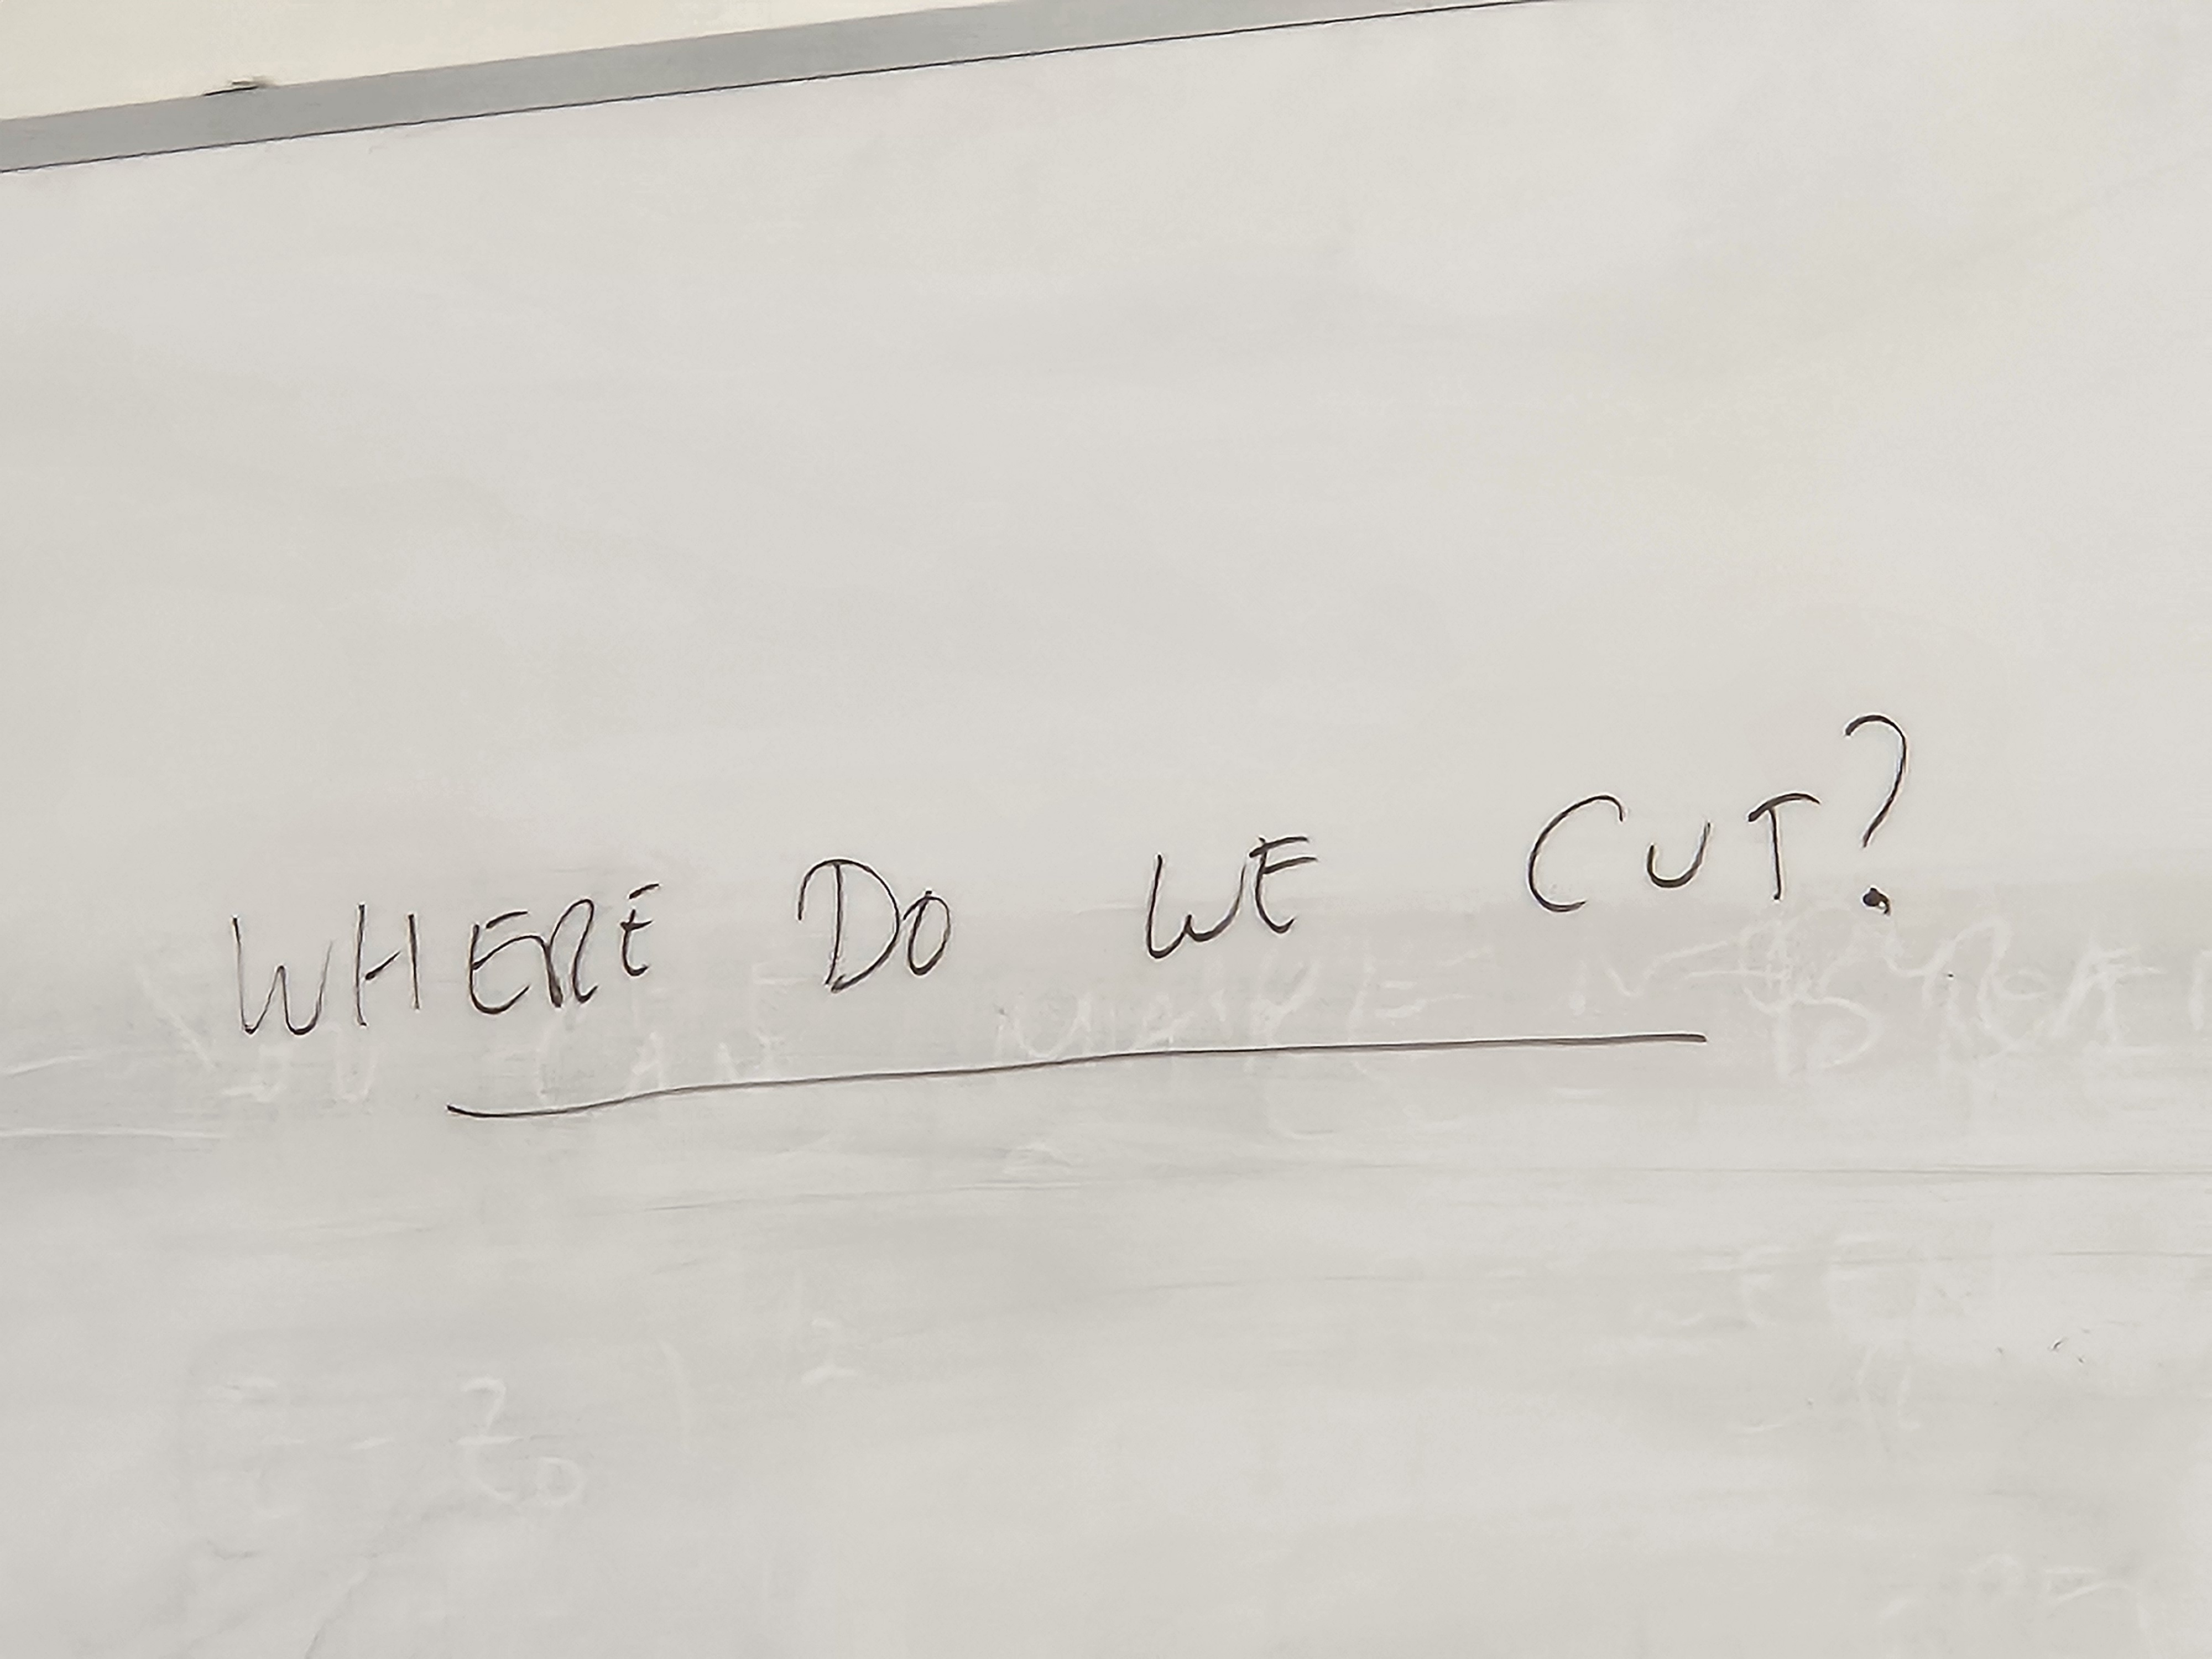 WHERE DO WE CUT?